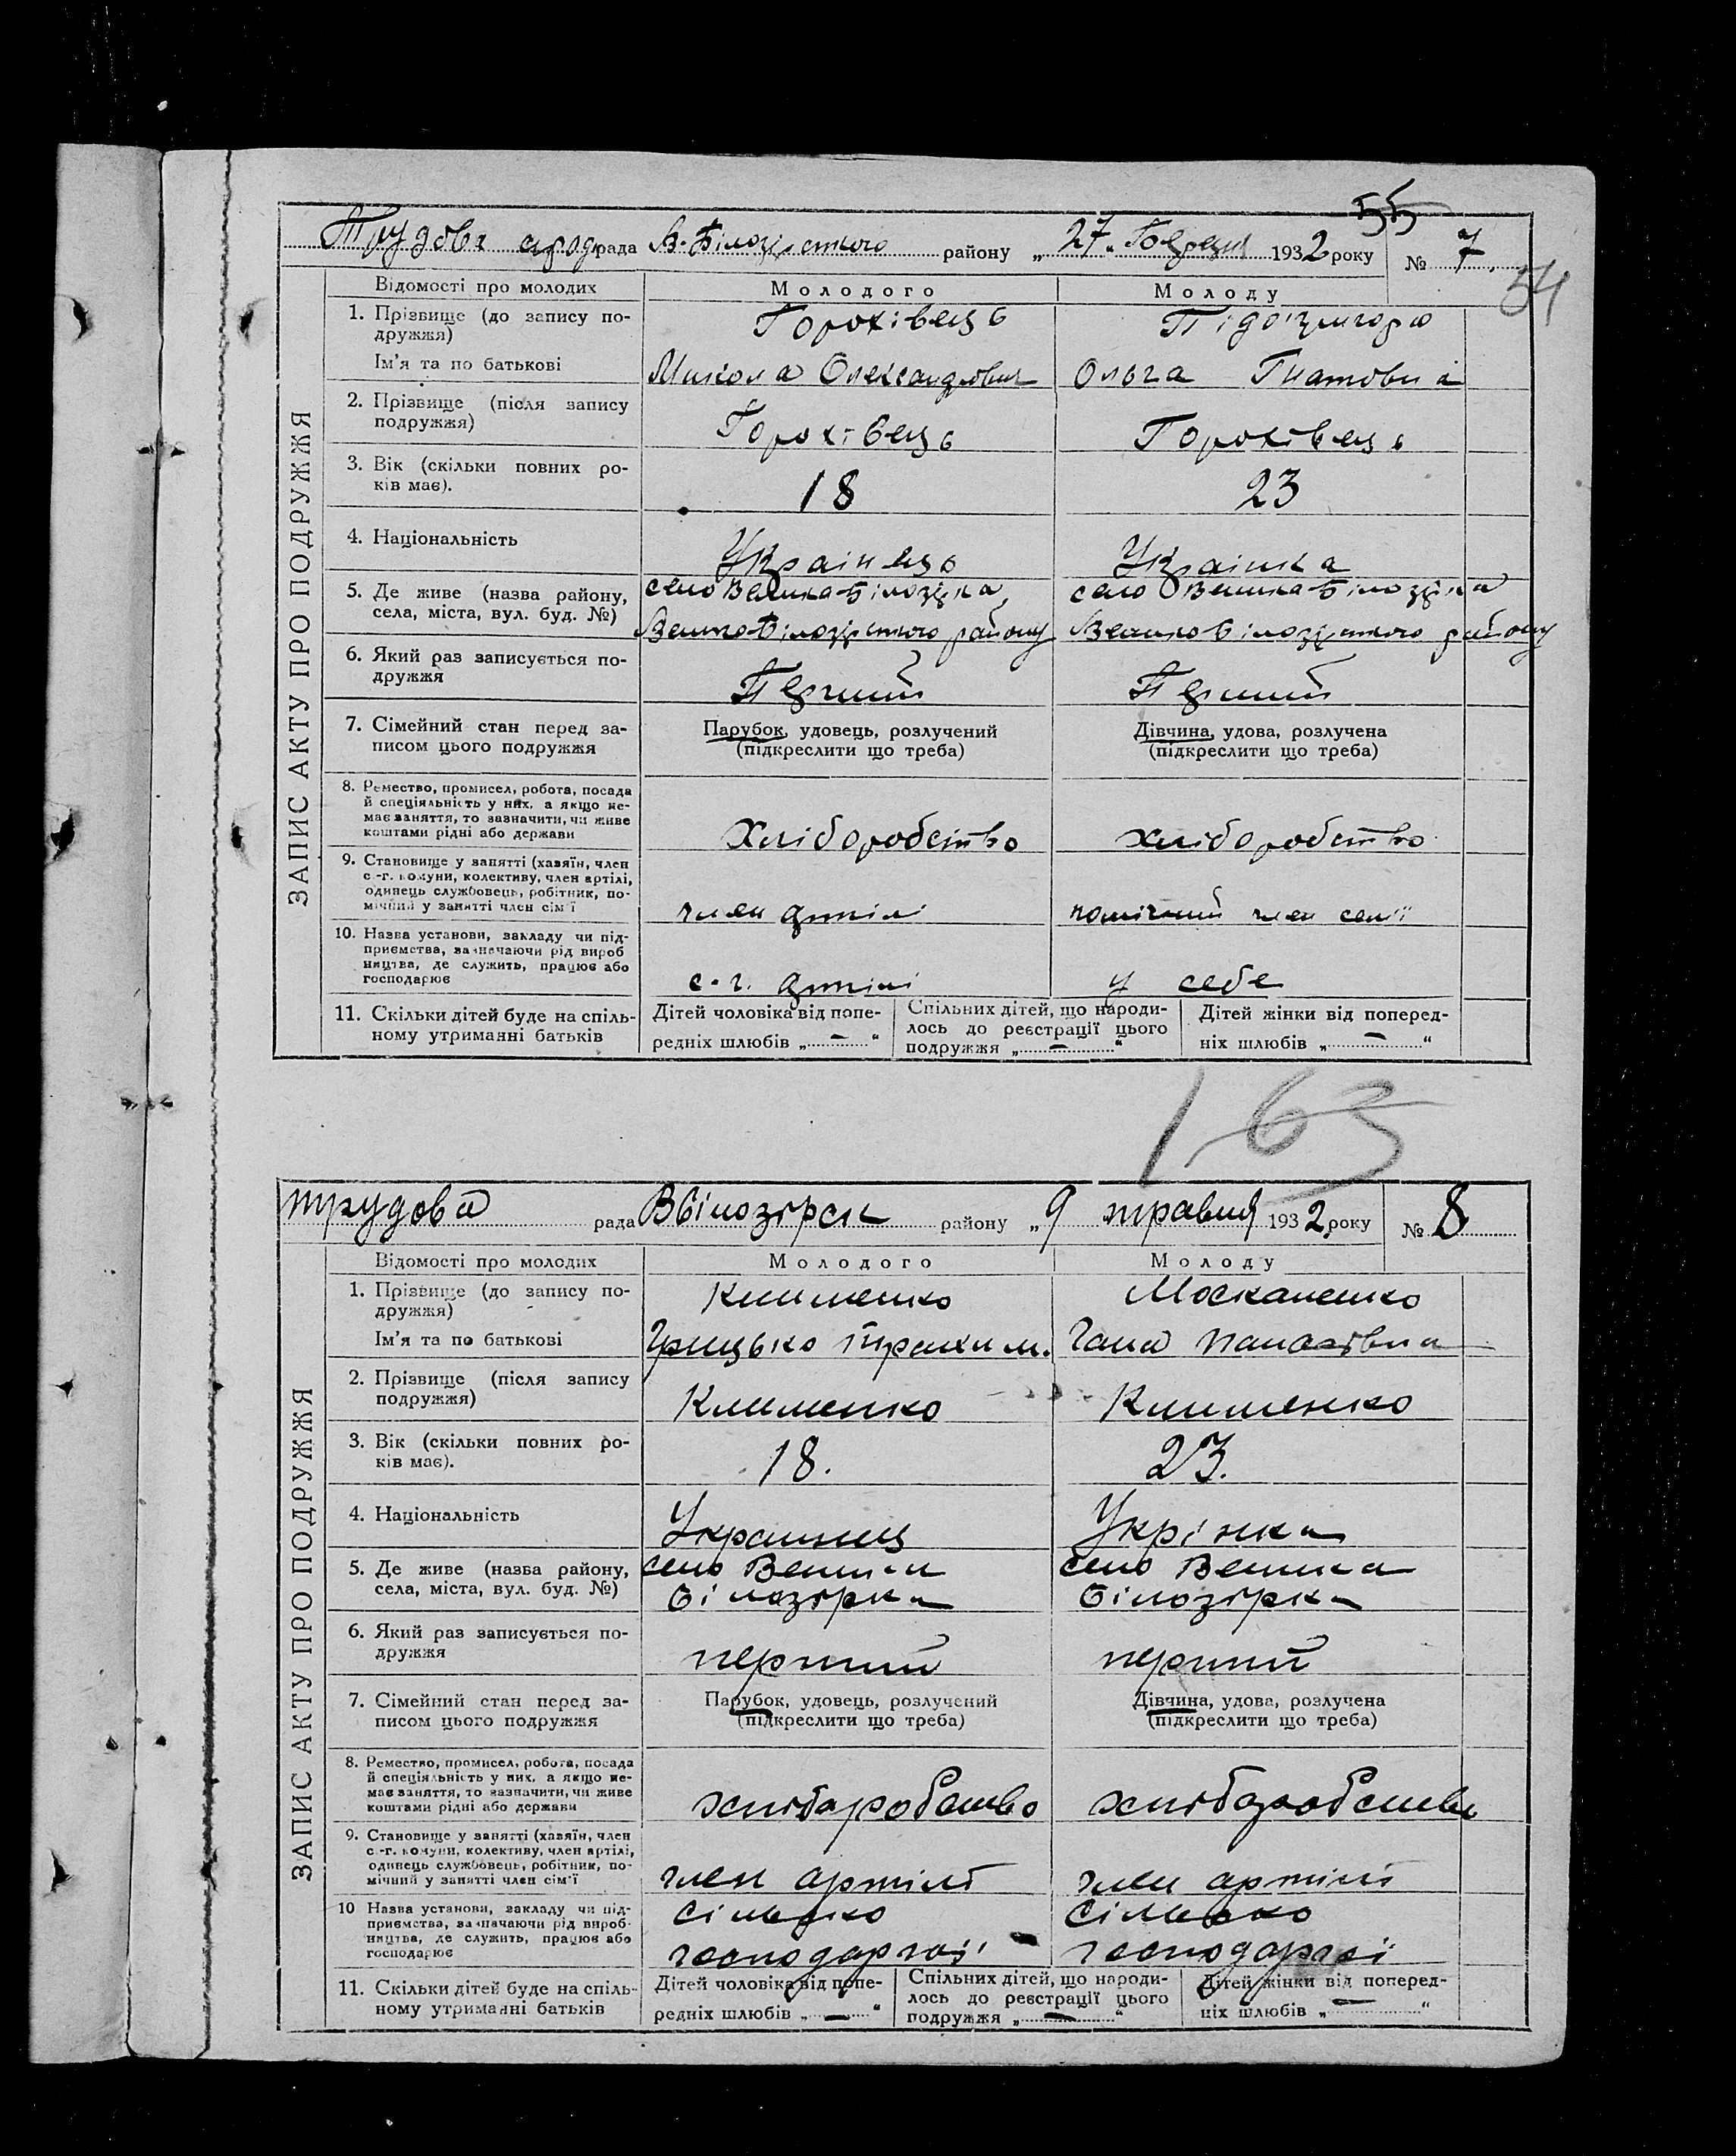 55
Трудова рада В-Білозірського району „27„ березня 1932 року № 7.
54
ЗАПИС АКТУ ПРО ПОДРУЖЖЯ
Відомості про молодих Молодого Молоду
1. Прізвище (до запису по-
дружжя) Горохівець
Ім'я та по батькові Микола Олександрович Ольга Гнатовна
2. Прізвище (після запису
подружжя) Горохівець Горохівець
3. Вік (скільки повних ро-
ків має). 18 23
4. Національність Українець Українка
5. Де живе (назва району, село Велика-Білозірка, село Велика-Білозірка
села, міста, вул. буд. №) Велико-Білозірського району Велико Білозірського району
6. Який раз записується по-
дружжя Перший Перший
7. Сімейний стан перед за- Парубок, удовець, розлучений Дівчина, удова, розлучена
писом цього подружжя (підкреслити що треба) (підкреслити що треба)
8. Ремество, промисел, робота, посада
й спеціяльність у них, а якщо не-
має заняття, то зазначити, чи живе
коштами рідні або держави Хліборобство хліборобство
9. Становище у занятті (хазяїн, член
с.-г. комуни, колективу, член артілі,
одинець службовець, робітник, по-
мічний у занятті член сім'ї член артілі помічний член семї
10. Назва установи, закладу чи під-
приємства, зазначаючи рід вироб
ництва, де служить, працює або
господарює с.-г. артілі у себе
11. Скільки дітей буде на спіль- Дітей чоловіка від попе- Спільних дітей, що народи- Дітей жінки від поперед-
ному утриманні батьків редніх шлюбів „ — “ лось до реєстрації цього ніх шлюбів „ — “
подружжя „ — “
163
трудова рада Вбілозірск району „9 травня 1932 року № 8
ЗАПИС АКТУ ПРО ПОДРУЖЖЯ
Відомості про молодих Молодого Молоду
1. Прізвище (до запису по- Клименко Москаленко
дружжя)
Ім'я та по батькові Грицько Трохим. Гана Панасівна
2. Прізвище (після запису
подружжя) Клименко Клименко
3. Вік (скільки повних ро-
ків має). 18. 23.
4. Національність Украинец Укрінка
5. Де живе (назва району, село Велика село Велика
села, міста, вул. буд. №) Білозірка Білозірка
6. Який раз записується по-
дружжя перший перший
7. Сімейний стан перед за- Парубок, удовець, розлучений Дівчина, удова, розлучена
писом цього подружжя (підкреслити що треба) (підкреслити що треба)
8. Ремество, промисел, робота, посада
й спеціяльність у них, а якщо не-
має заняття, то зазначити, чи живе
коштами рідні або держави хлібаробство хлібаробство
9. Становище у занятті (хазяїн, член
с.-г. комуни, колективу, член артілі,
одинець службовець, робітник, по-
мічний у занятті член сім'ї член артілі член артілі
10 Назва установи, закладу чи під- Сільсько Сільсько
приємства, зазначаючи рід вироб-
ництва, де служить, працює або
господарює господарчої господарчої
11. Скільки дітей буде на спіль- Дітей чоловіка від попе- Спільних дітей, що народи- Дітей жінки від поперед-
ному утриманні батьків редніх шлюбів „ — “ лось до реєстрації цього ніх шлюбів „ — “
подружжя „ — “